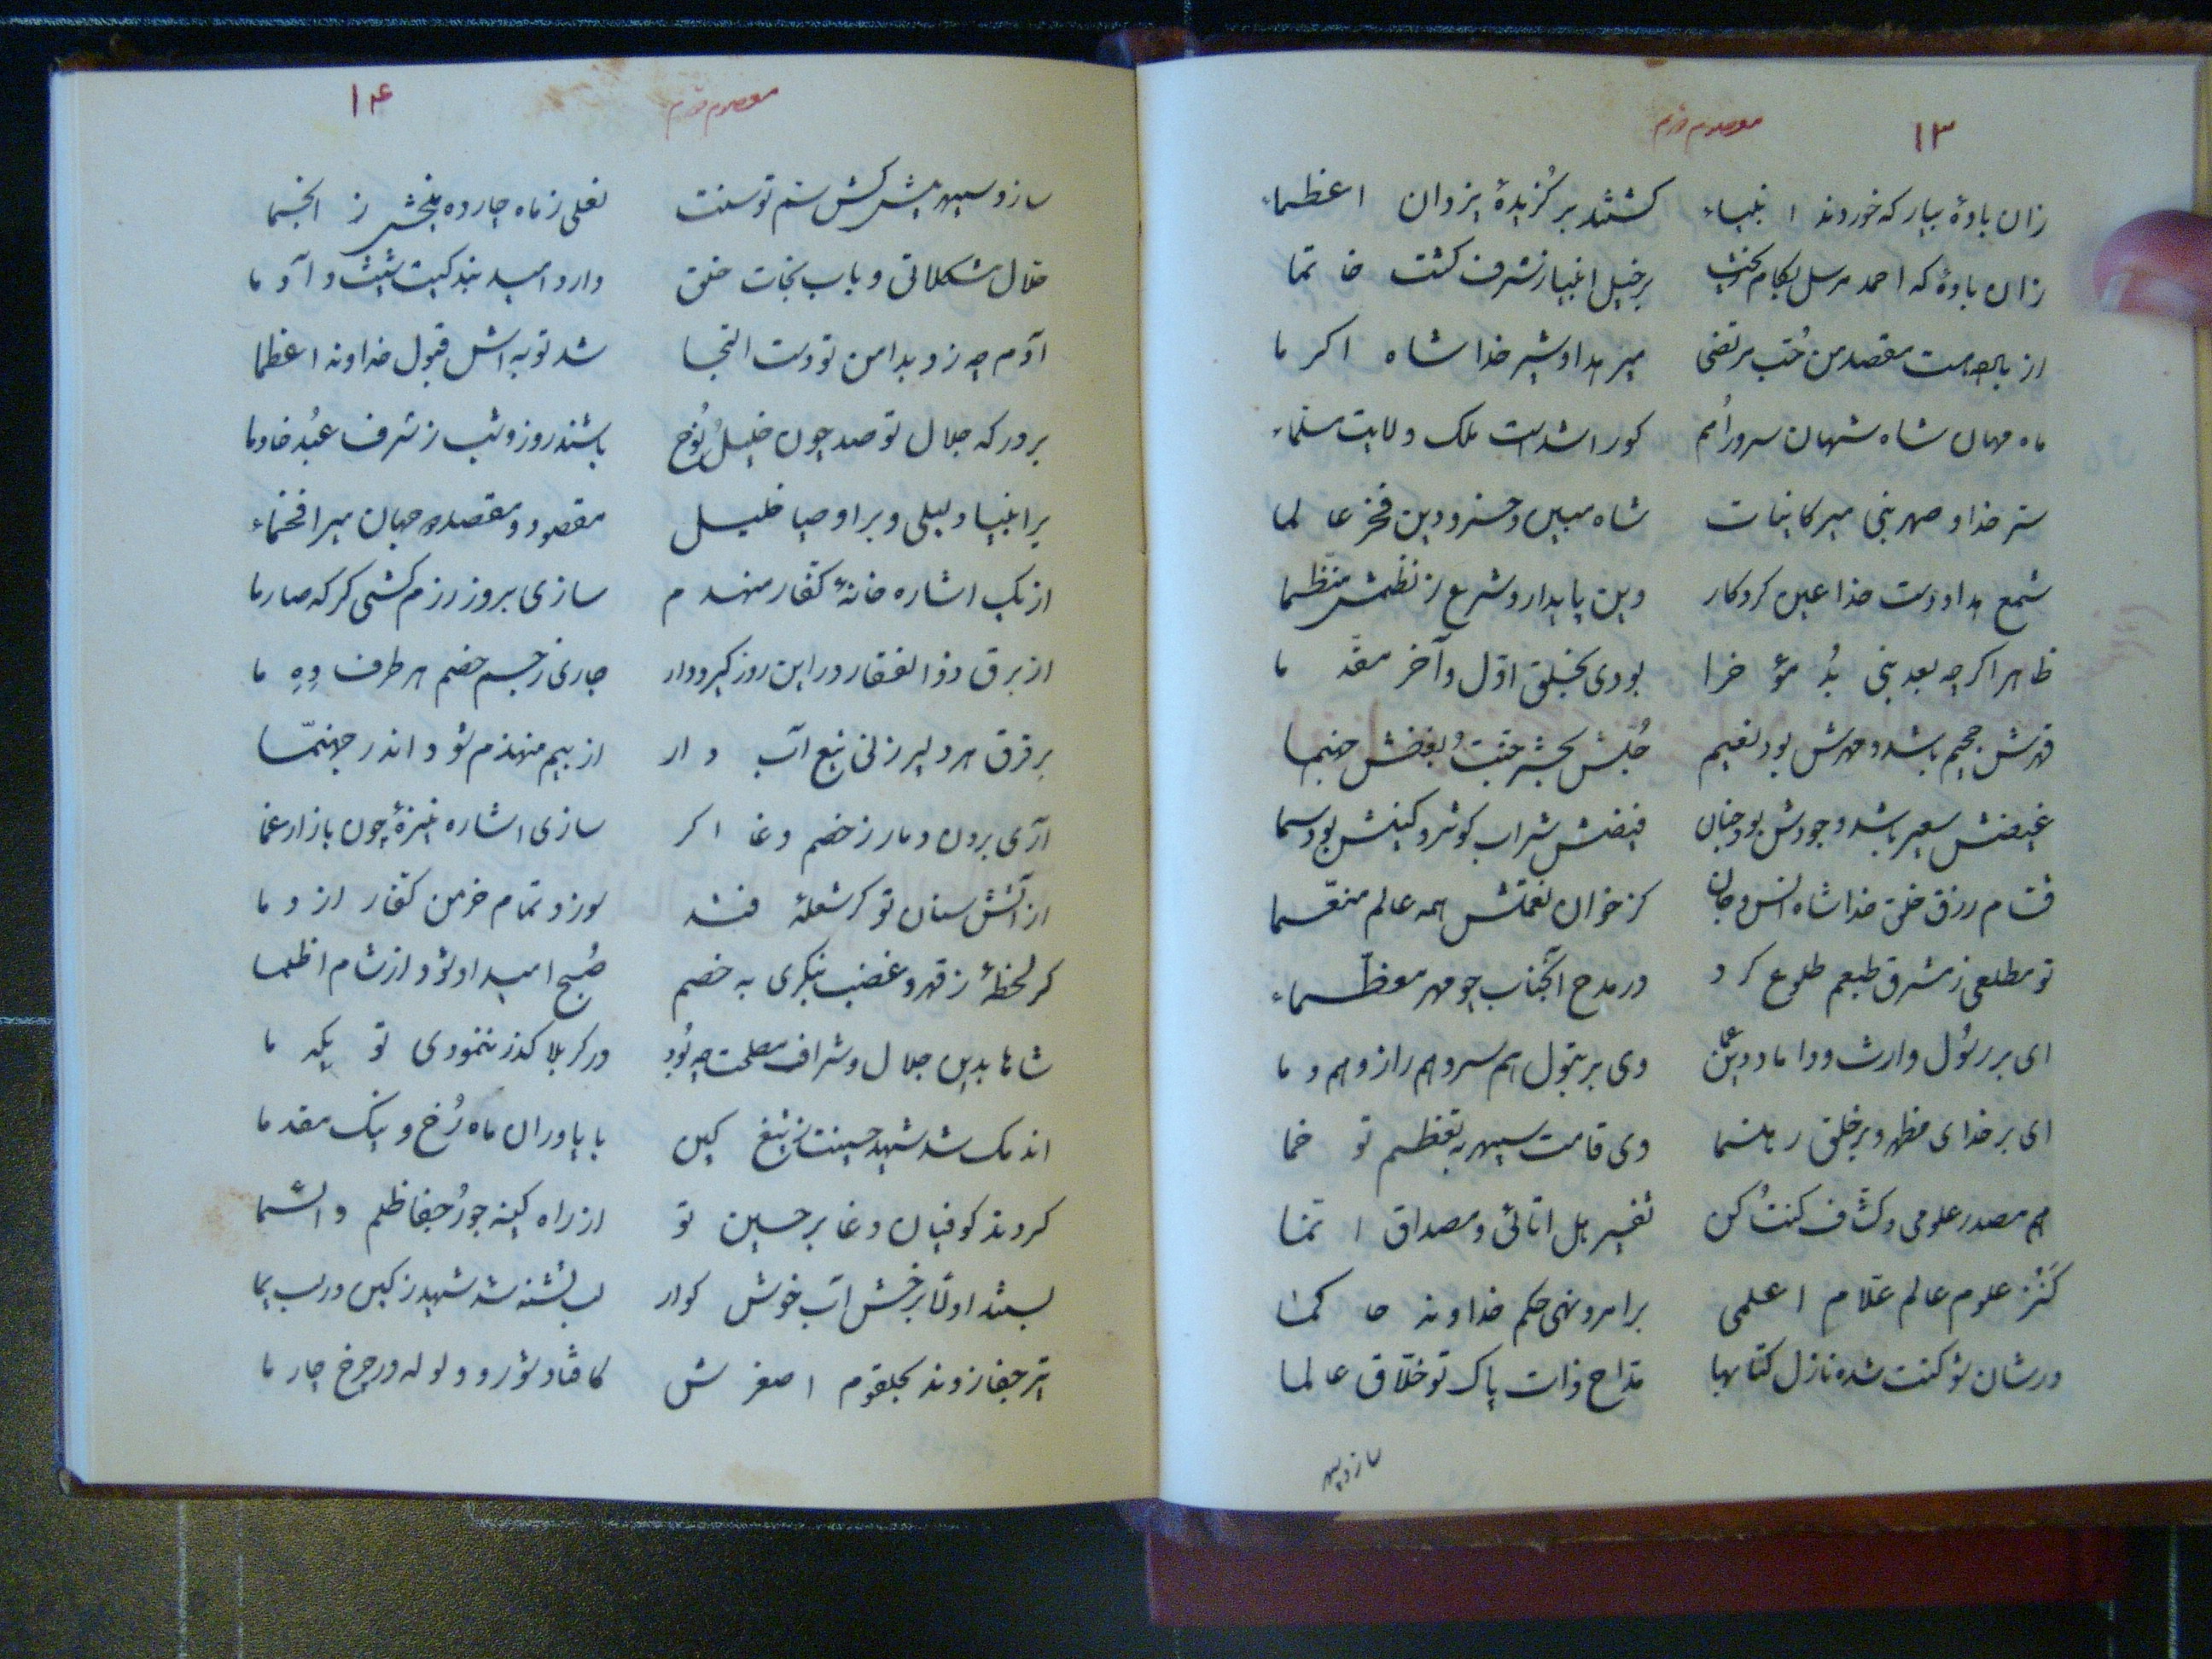 ۱۳
زان بادهٔ بیار که خوردند انبیاء کشتند برگزیدهٔ یزدان اعظماء
زان بادهٔ که احمد مرسل بکام برخیل انبیا ز شرف کشت خاتما
از باده است مقصد من حُب مرتضی میر هدا و شیر خدا شاه اکرما
ماه مهان شاه شهان سرور اُمم کورا شداست ملک ولایت سلماء
سر خدا و صهر نبی میر کاینات شاه مبین و خسرو دین فخر عالما
شمع هدا و دست خدا عین کردکار دین پایدار و شرع ز نظمش منظما
ظاهر اکرچه بعد نبی بُد مؤخرا بودی بخلق اوّل و آخر مقدما
قهرش جحیم باشد و مهرش بود نعیم حُبّش بحشر جنّت و بغضش جهنما
غیضش سعیر باشد و جودش بود جنان فیضش شراب کوثر و کینش بود سما
قسام رزق خلق خدا شاه انس و جان کز خوان نعمتش همه عالم منعّما
نو مطلعی ز مشرق طبعم طلوع کرد در مدح آنجناب چو مهر معظّماء
ای بر رسُول وارث و داماد و ابن عم وی بر بتول همسر و همراز و همدما
ای بر خدای مظهر و بر خلق رهنما وی قامت سپهر به تعظیم تو خما
هم مصدر علومی و کشّاف کنتُ کن تفسیر هل اتائی و مصداق انّما
کَنز علوم عالم علّام اعلمی بر امر و نهی حکم خداوند حاکما
در شان تو کشت شده نازل کتابها مدّاح ذات پاک تو خلّاق عالما
سازد سپهر
۱۴
سازد سپهر پیش کش سم توسنت نعلی ز ماه چارده میخش ز انجما
حلّال مشکلاتی و باب نجات خلق دارد امید بندکیت شیث و آدما
آدم چه زد بدامن تو دست التجا شد توبه اش قبول خداوند اعظما
بر درکه جلال تو صد چون خلیل و نُوح باشند روز و شب ز شرف عبُد خادما
بر انبیا دلیلی و بر اوصیا خلیل مقصود و مقصد جهان میر افخماء
از یک اشاره خانهٔ کفّار منهدم سازی بروز رزم کشی کر که صارما
از برق ذو الفقار در این روز کیر و دار جاری ز جسم خصم هر طرف
بر فرق هر دلیر زنی تیغ آب دار از بیم منهدم شود اندر جهنّما
آری برون دمار ز خصم دغا اکر سازی اشاره غمزهٔ چون باز
از آتش سنان تو کر شعلهٔ فتد سوزد تمام خرمن کفّار از دما
کر لحظهٔ ز قهر و غضب بنکری به خصم صُبح امید او شود از شام اظلما
شاها بدین جلال و شرافت مصلحت چه بُود در کربلا کذر ننمودی تو یکدما
اندم که شد شهید حسینت ز تیغ کین با یاوران ماه رُخ و نیک مقدما
کردند کوفیان دغا بر حسین تو از راه کینه جور و جفا ظلم و الستما
بستند اولا برخش آب خوش کوار لب تشنه شد شهید ز کین در لب یما
تیر جفا زدند بحلقوم اصغرش کافتاد شور و ولوله در چرخ چارما